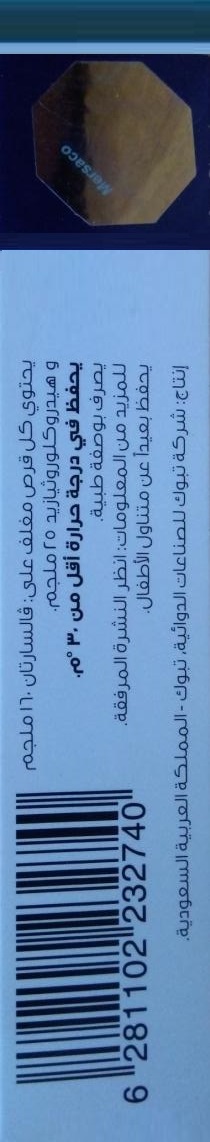 Mersaco
يحتوي كل قرص مغلف على: فالسارتان ١٦٠ ملجم
و هيدروكلوروثيازيد ٢٥ ملجم.
يحفظ في درجة حرارة أقل من ٣٠ °م.
تصرف بوصفة طبية.
للمزيد من المعلومات: انظر النشرة المرفقة.
يحفظ بعيداً عن متناول الأطفال.
إنتاج: شركة تبوك للصناعات الدوائية، تبوك - المملكة العربية السعودية.
6 281102 232740